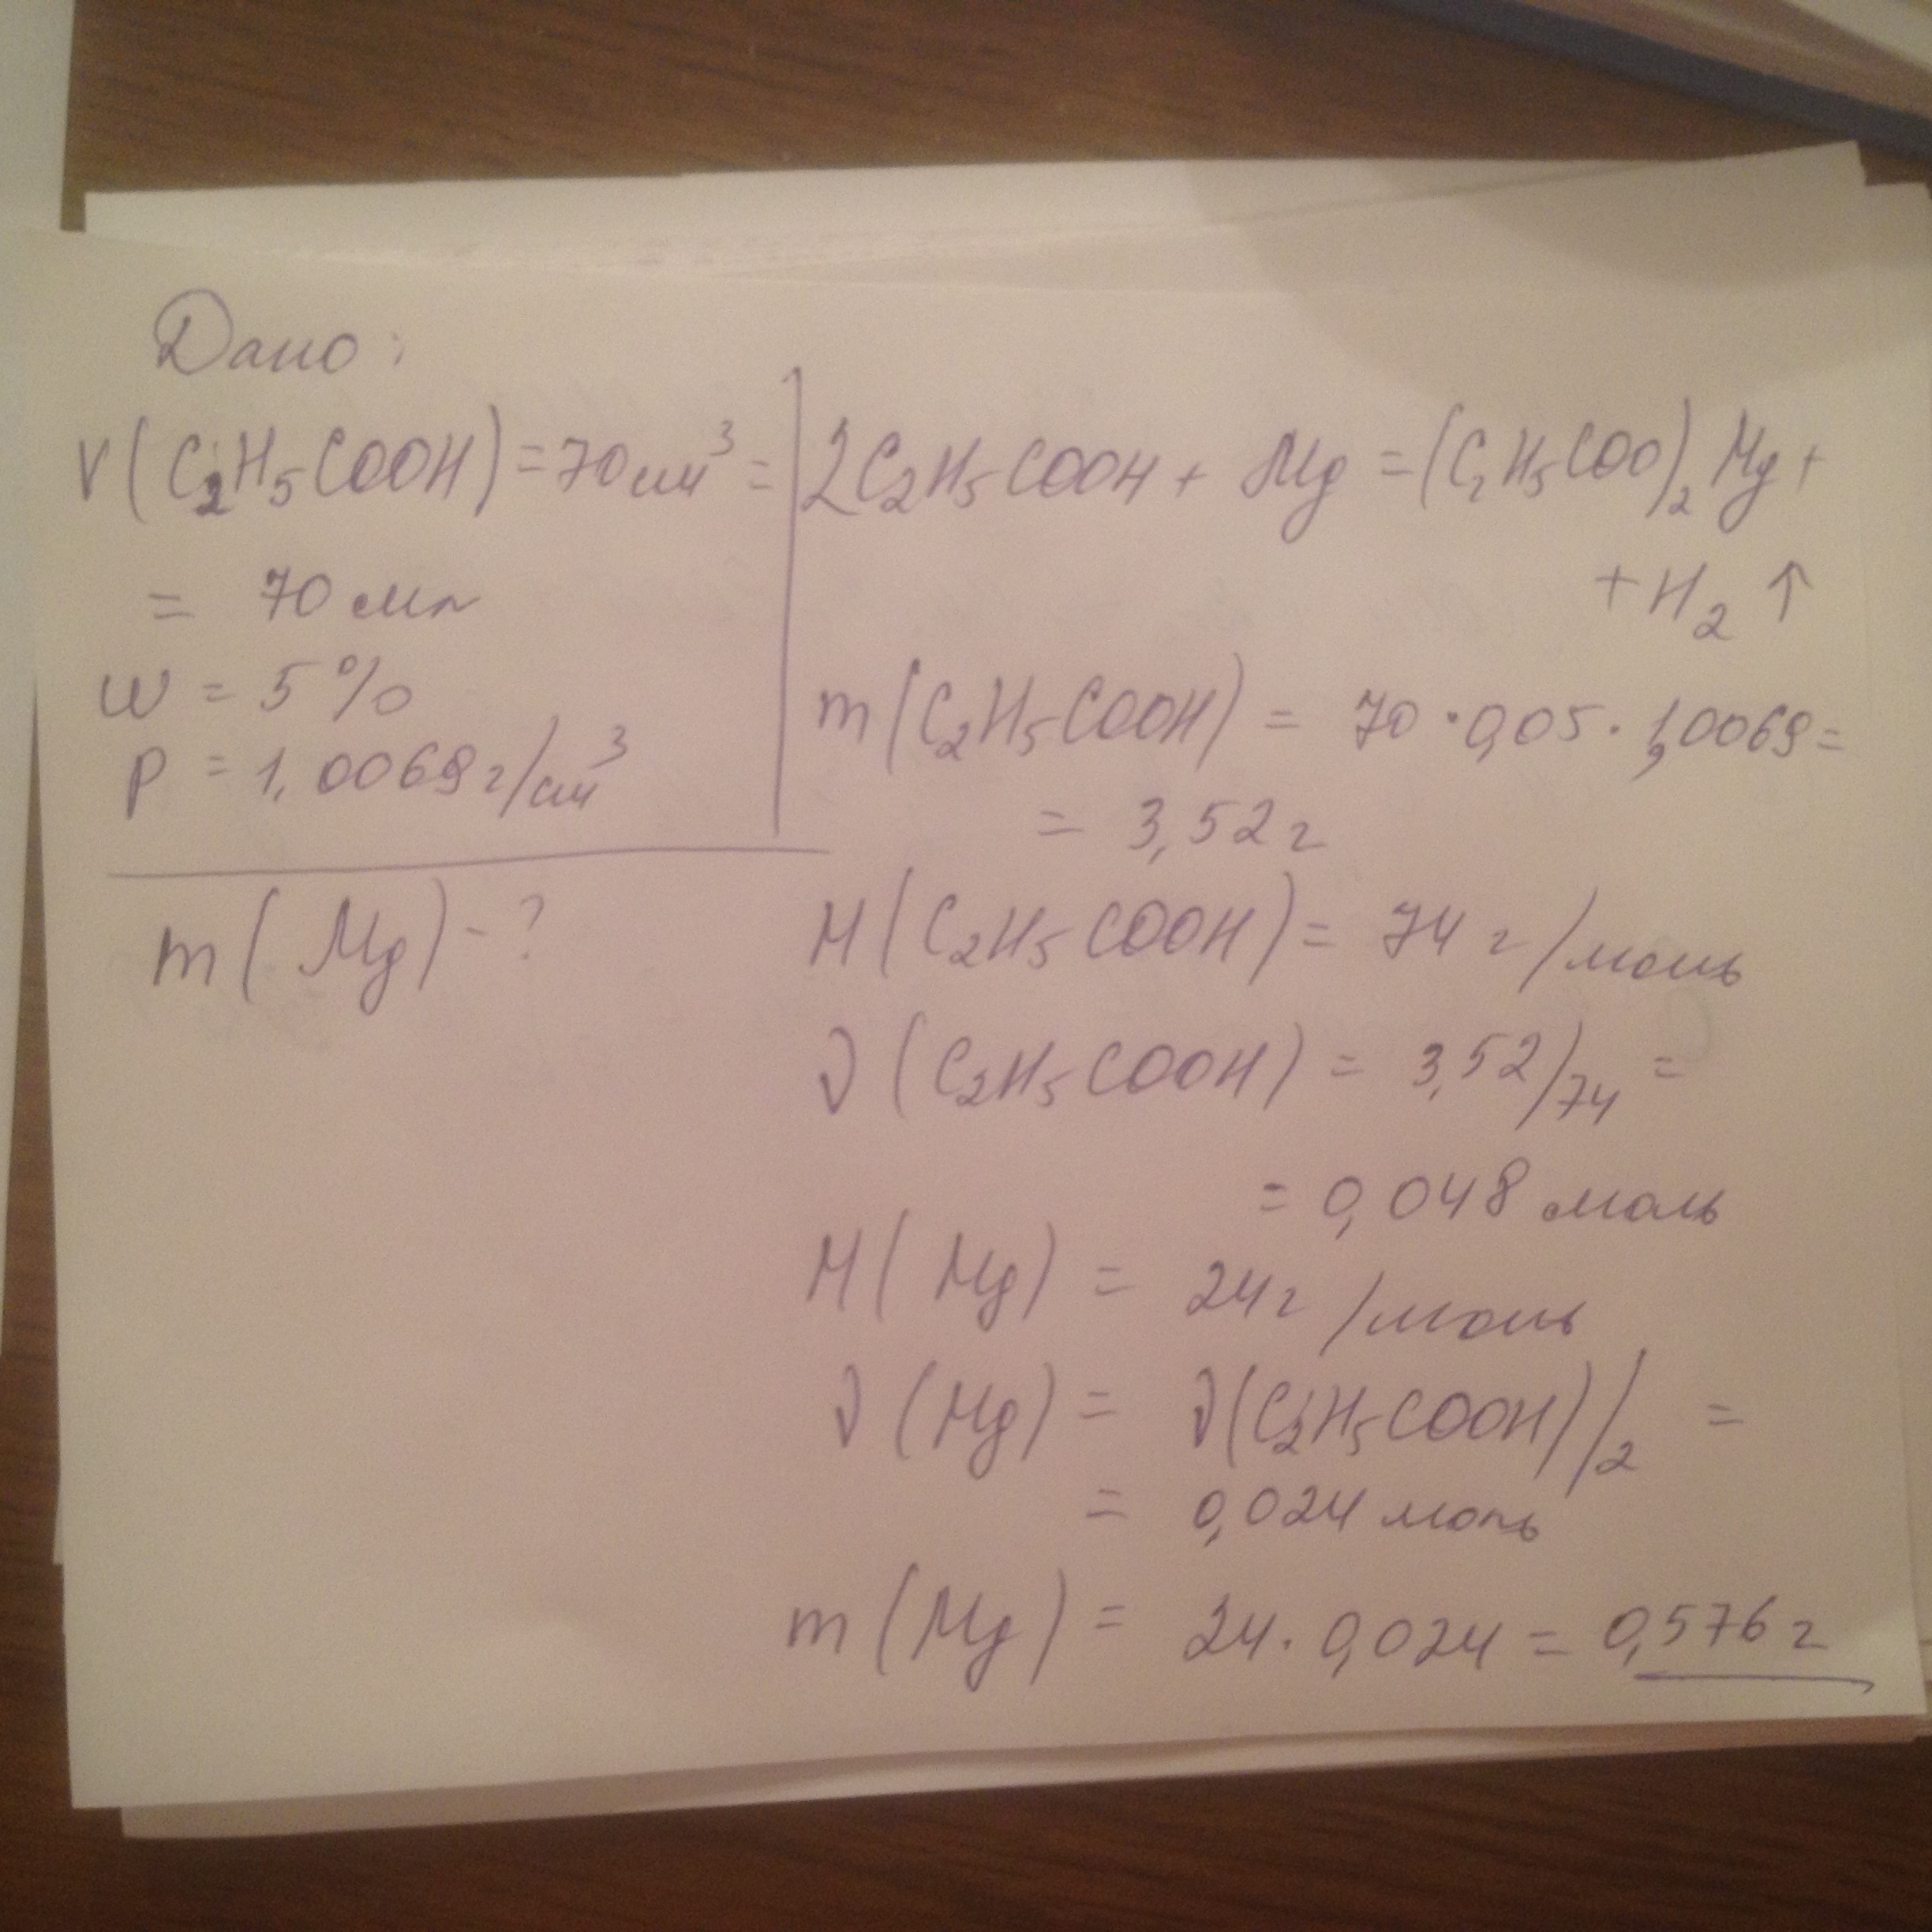 Дано:
V(C2H5COOH)=70см³=
= 70 мл
w = 5%
ρ = 1,0069 г/см³
m(Mg)-?
2C2H5COOH + Mg = (C2H5COO)2Mg +
+ H2 ↑
m(C2H5COOH) = 70 · 0,05 · 1,0069 =
= 3,52 г
M(C2H5COOH) = 74 г/моль
ν(C2H5COOH) = 3,52/74 =
= 0,048 моль
M(Mg) = 24 г/моль
ν(Mg) = ν(C2H5COOH)/2 =
= 0,024 моль
m(Mg) = 24 · 0,024 = 0,576 г